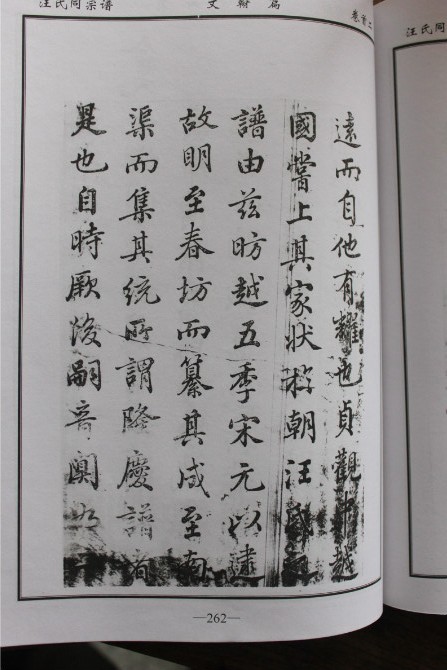 汪氏同宗譜 文翰篇 卷首
遠而自他有耀也貞觀中越
國嘗上其家狀於朝汪
譜由茲昉越五季宋元以逮
故明至春坊而纂其成至南
渠而集其統所謂隆慶譜者
是也自時厥後嗣音闃
—262—
汪氏同